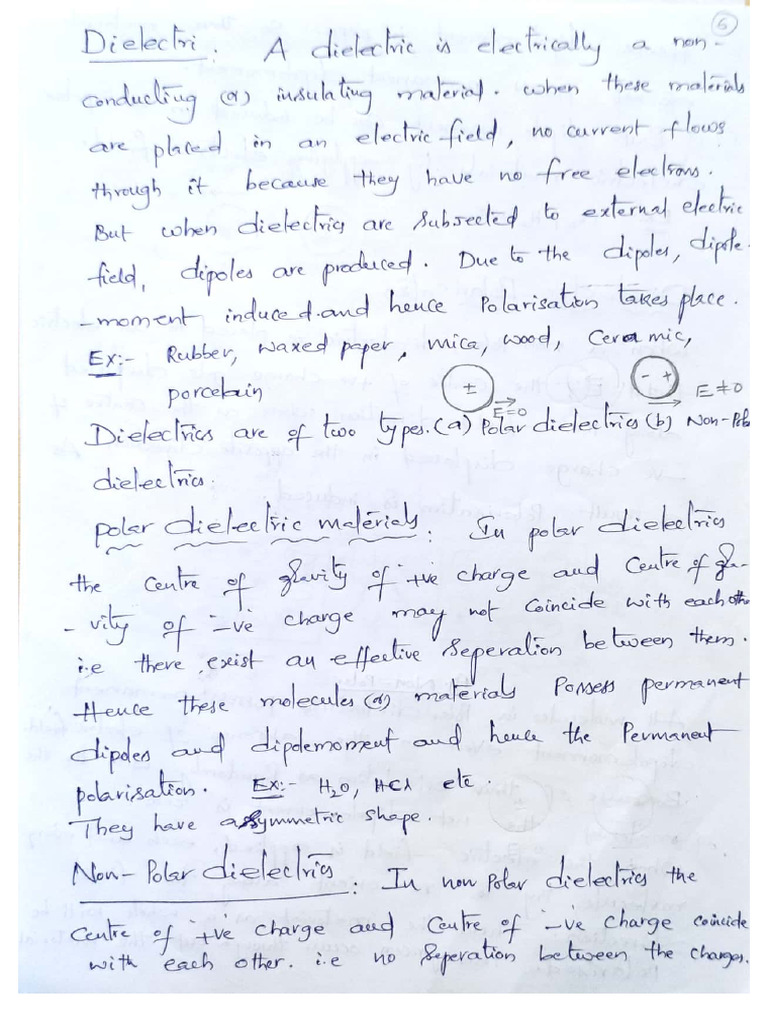 6
Dielectri : A dielectric is electrically a non-
conducting (or) insulating material. when these materials
are placed in an electric field, no current flows
through it because they have no free electrons.
But when dielectrics are subjected to external electric
field, dipoles are produced. Due to the dipoles, dipole
-moment induced and hence Polarisation takes place.
Ex:- Rubber, waxed paper, mica, wood, Ceramic,
porcelain
± E=0 - + E≠0
Dielectrics are of two types. (a) Polar dielectrics (b) Non-Polar
dielectrics.
polar dielectric materials : In polar dielectrics
the Centre of gravity of +ve charge and Centre of gra-
-vity of -ve charge may not Coincide with each other
i.e there exist an effective Seperation between them.
Hence these molecules (or) materials Possess permanent
dipoles and dipolemoment and hence the Permanent
polarisation. Ex:- H2O, HCl etc.
They have assymmetric shape.
Non-Polar dielectrics : In non polar dielectrics the
Centre of +ve charge and Centre of -ve charge coincide
with each other. i.e no Seperation between the charges.